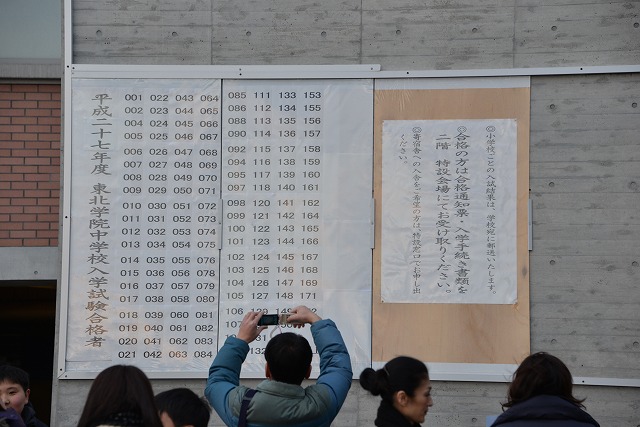 平成二十七年度 東北学院中学校入学試験合格者
001 022 043 064
002 023 044 065
004 024 045 066
005 025 046 067
006 026 047 068
007 027 048 069
008 028 049 070
009 029 050 071
010 030 051 072
011 031 052 073
012 032 053 074
013 034 054 075
014 035 055 076
015 036 056 078
016 037 057 079
017 038 058 080
018 039 060 081
019 040 061 082
020 041 062 083
021 042 063 084
085 111 133 153
086 112 134 155
088 113 135 156
090 114 136 157
092 115 137 158
094 116 138 159
095 117 139 160
097 118 140 161
098 120 141 162
099 121 142 164
100 122 143 165
101 123 144 166
102 124 145 167
103 125 146 168
104 126 148 169
105 127 149 171
106
132
◎小学校ごとの入試結果は、学校宛に郵送いたします。
◎合格の方は合格通知票・入学手続き書類を
二階 特設会場にてお受け取りください。
◎寄宿舎への入舎をご希望の方は、特設窓口でお申し出
ください。